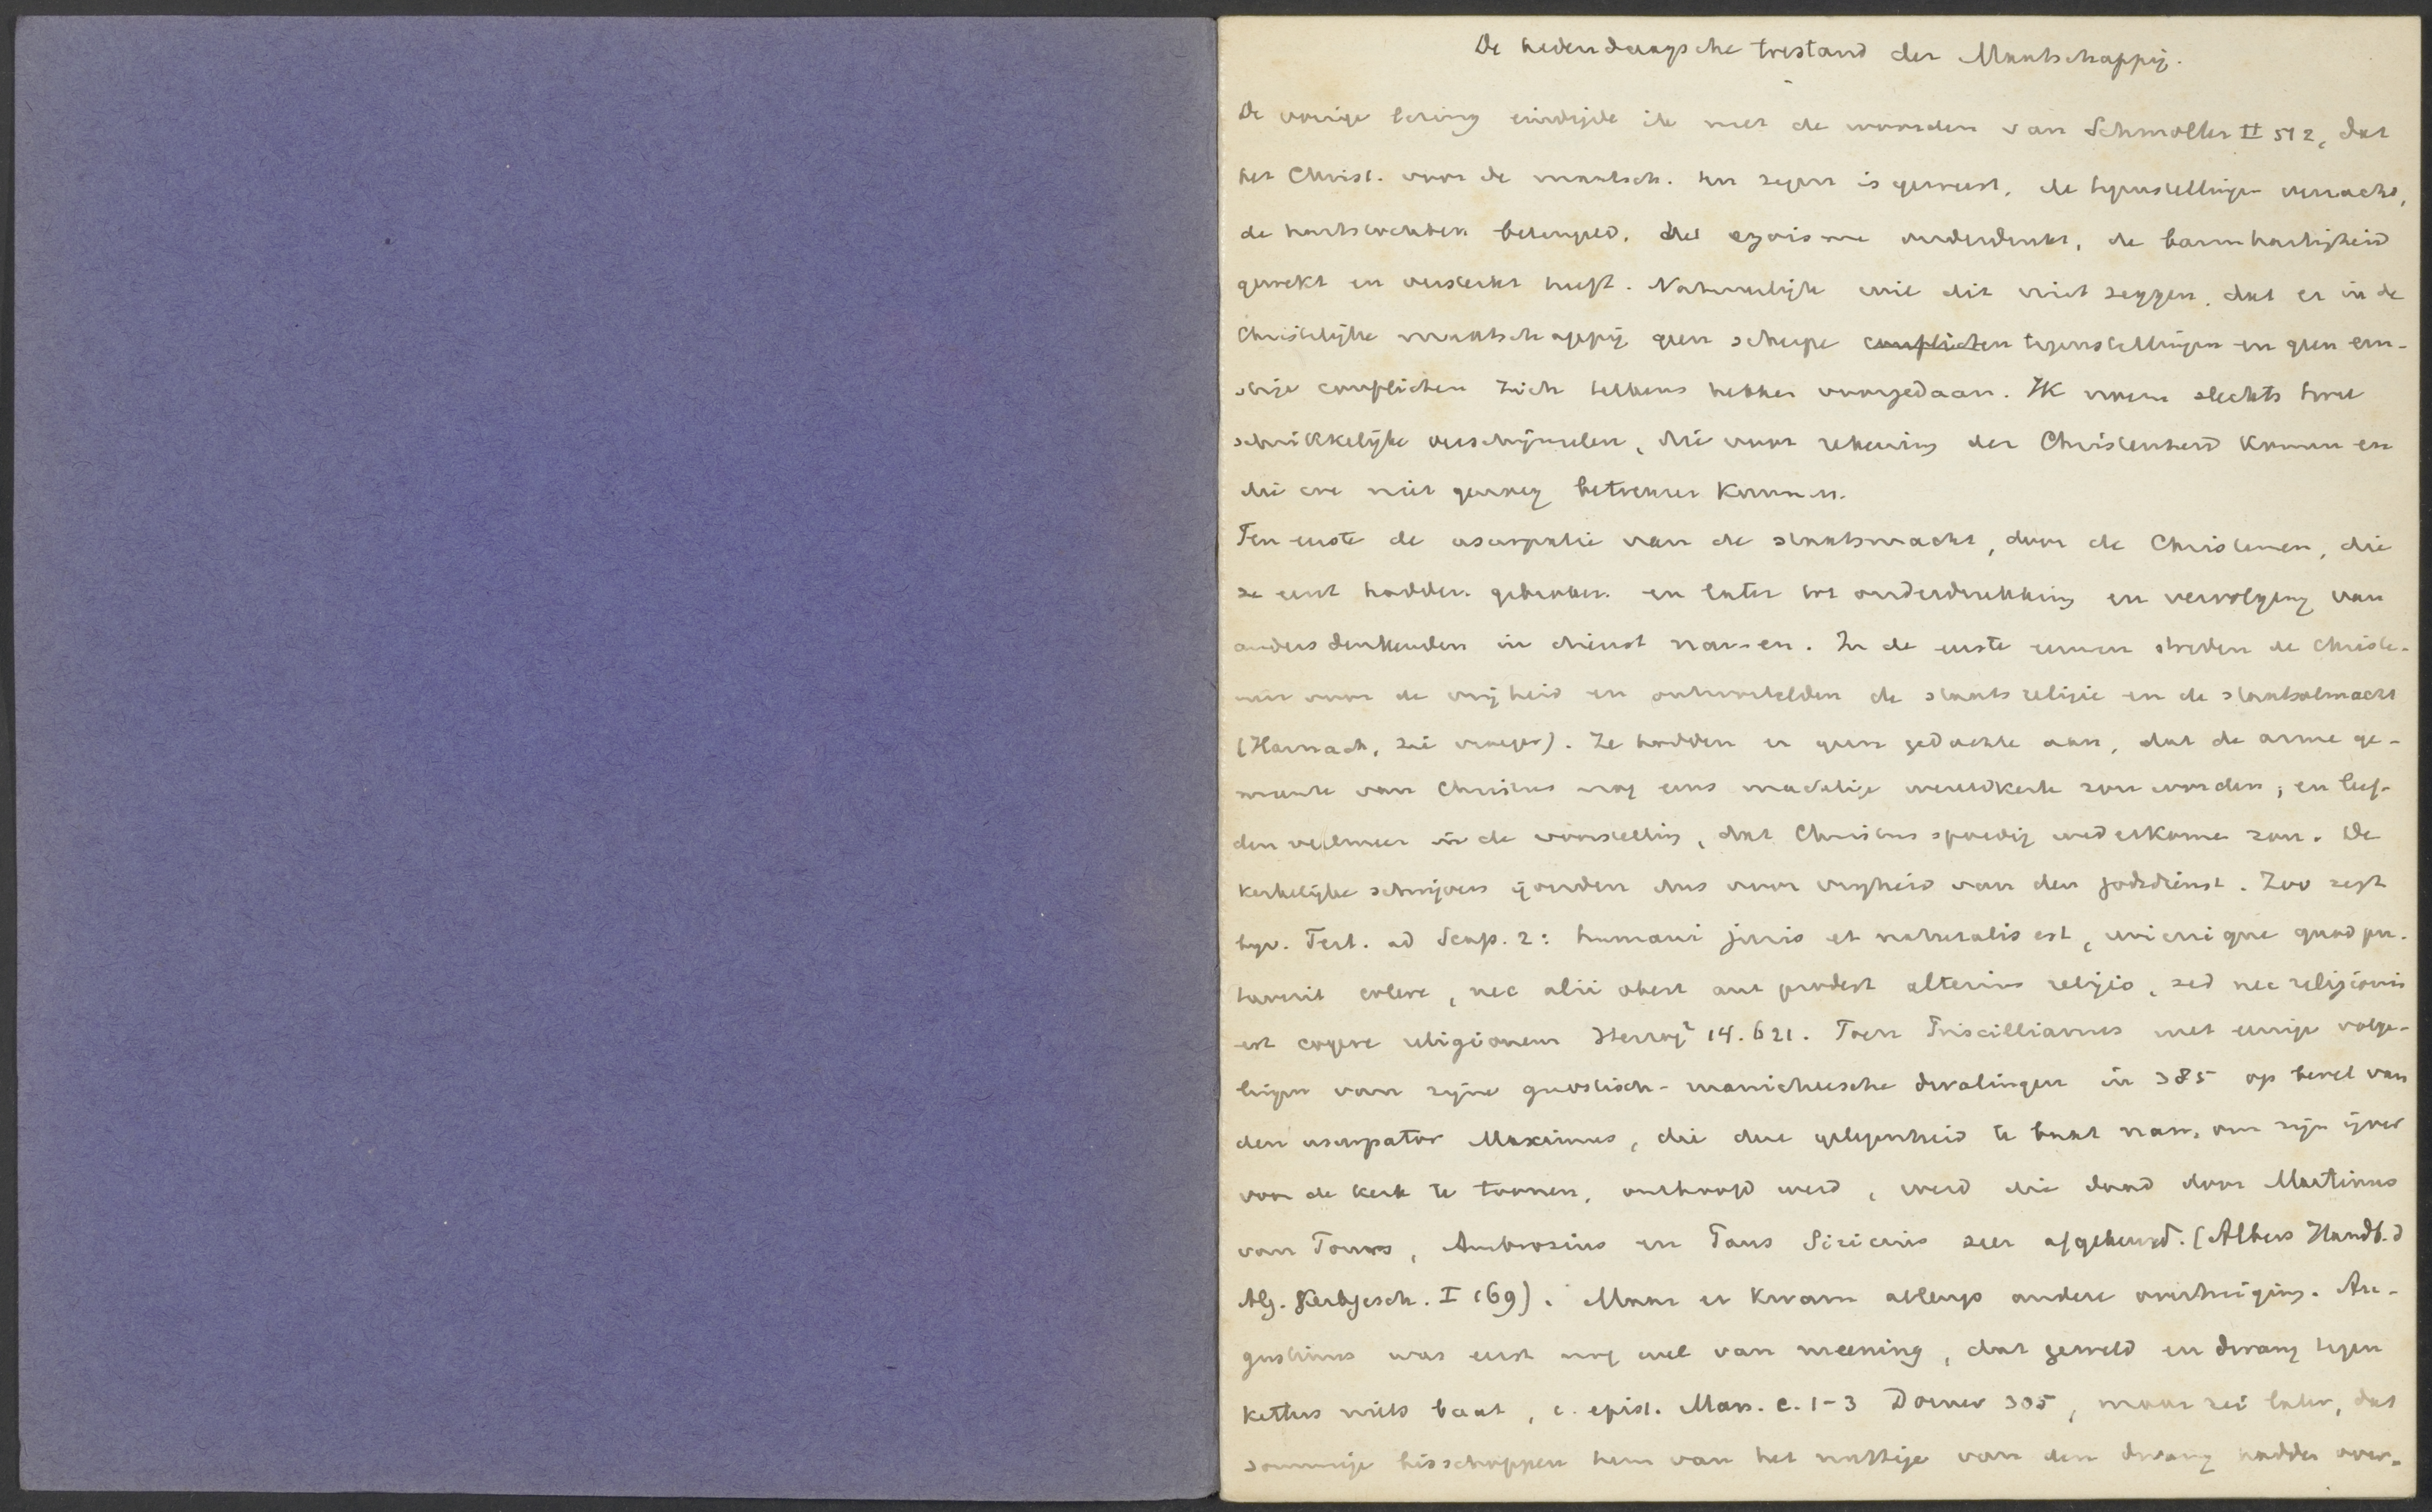 De hedendaagsche toestand der Maatschappij.
De vorige lezing eindigde ik met de woorden van Schmoller II 512, dat
het Christ. voor de maatsch. een zegen is geweest, de tegenstellingen verzacht,
de hartstochten beteugeld, het egoisme onderdrukt, de barmhartigheid
gewekt en versterkt heeft. Natuurlijk wil dit niet zeggen, dat er in de
Christelijke maatschappij geen scherpe conflicten tegenstellingen en geen ern-
stige conflicten zich telkens hebben voorgedaan. Ik noem slechts twee
schrikkelijke verschijnselen, die voor rekening der Christenheid komen en
die we niet genoeg betreuren kunnen.
Ten eerste de usurpatie van de staatsmacht, door de Christenen, die
ze eerst hadden gebroken en later tot onderdrukking en vervolging van
andersdenkenden in dienst namen. In de eerste eeuwen streden de Christe-
nen voor de vrijheid en ontwortelden de staatsreligie en de staatsalmacht
(Harnack, zie vroeger). Ze hadden er geen gedachte aan, dat de arme ge-
meente van Christus nog eens machtige wereldkerk zou worden; en leef-
den veelmeer in de voorstelling, dat Christus spoedig wederkomen zou. De
kerkelijke schrijvers ijverden dus voor vrijheid van den godsdienst. Zoo zegt
bijv. Tert. ad Scap. 2: humani juris et naturalis est, unicuique quod pu-
taverit colere, nec alii obest aut prodest alterius religio, sed nec religionis
est cogere religionem Herzog² 14. 621. Toen Priscillianus met eenige volge-
lingen van zijne gnostisch-manicheesche dwalingen in 385 op bevel van
den usurpator Maximus, die deze gelegenheid te baat nam, om zijn ijver
voor de kerk te toonen, onthoofd werd, werd die daad door Martinus
van Tours, Ambrosius en Paus Siricius zeer afgekeurd. (Albers Handb. d
Alg. Kerkgesch. I 169). Maar er kwam allengs andere overtuiging. Au-
gustinus was eerst nog wel van meening, dat geweld en dwang tegen
ketters niets baat, c. epist. Man. c. 1-3 Dorner 305, maar zei later, dat
sommige bisschoppen hem van het nuttige van den dwang hadden over-